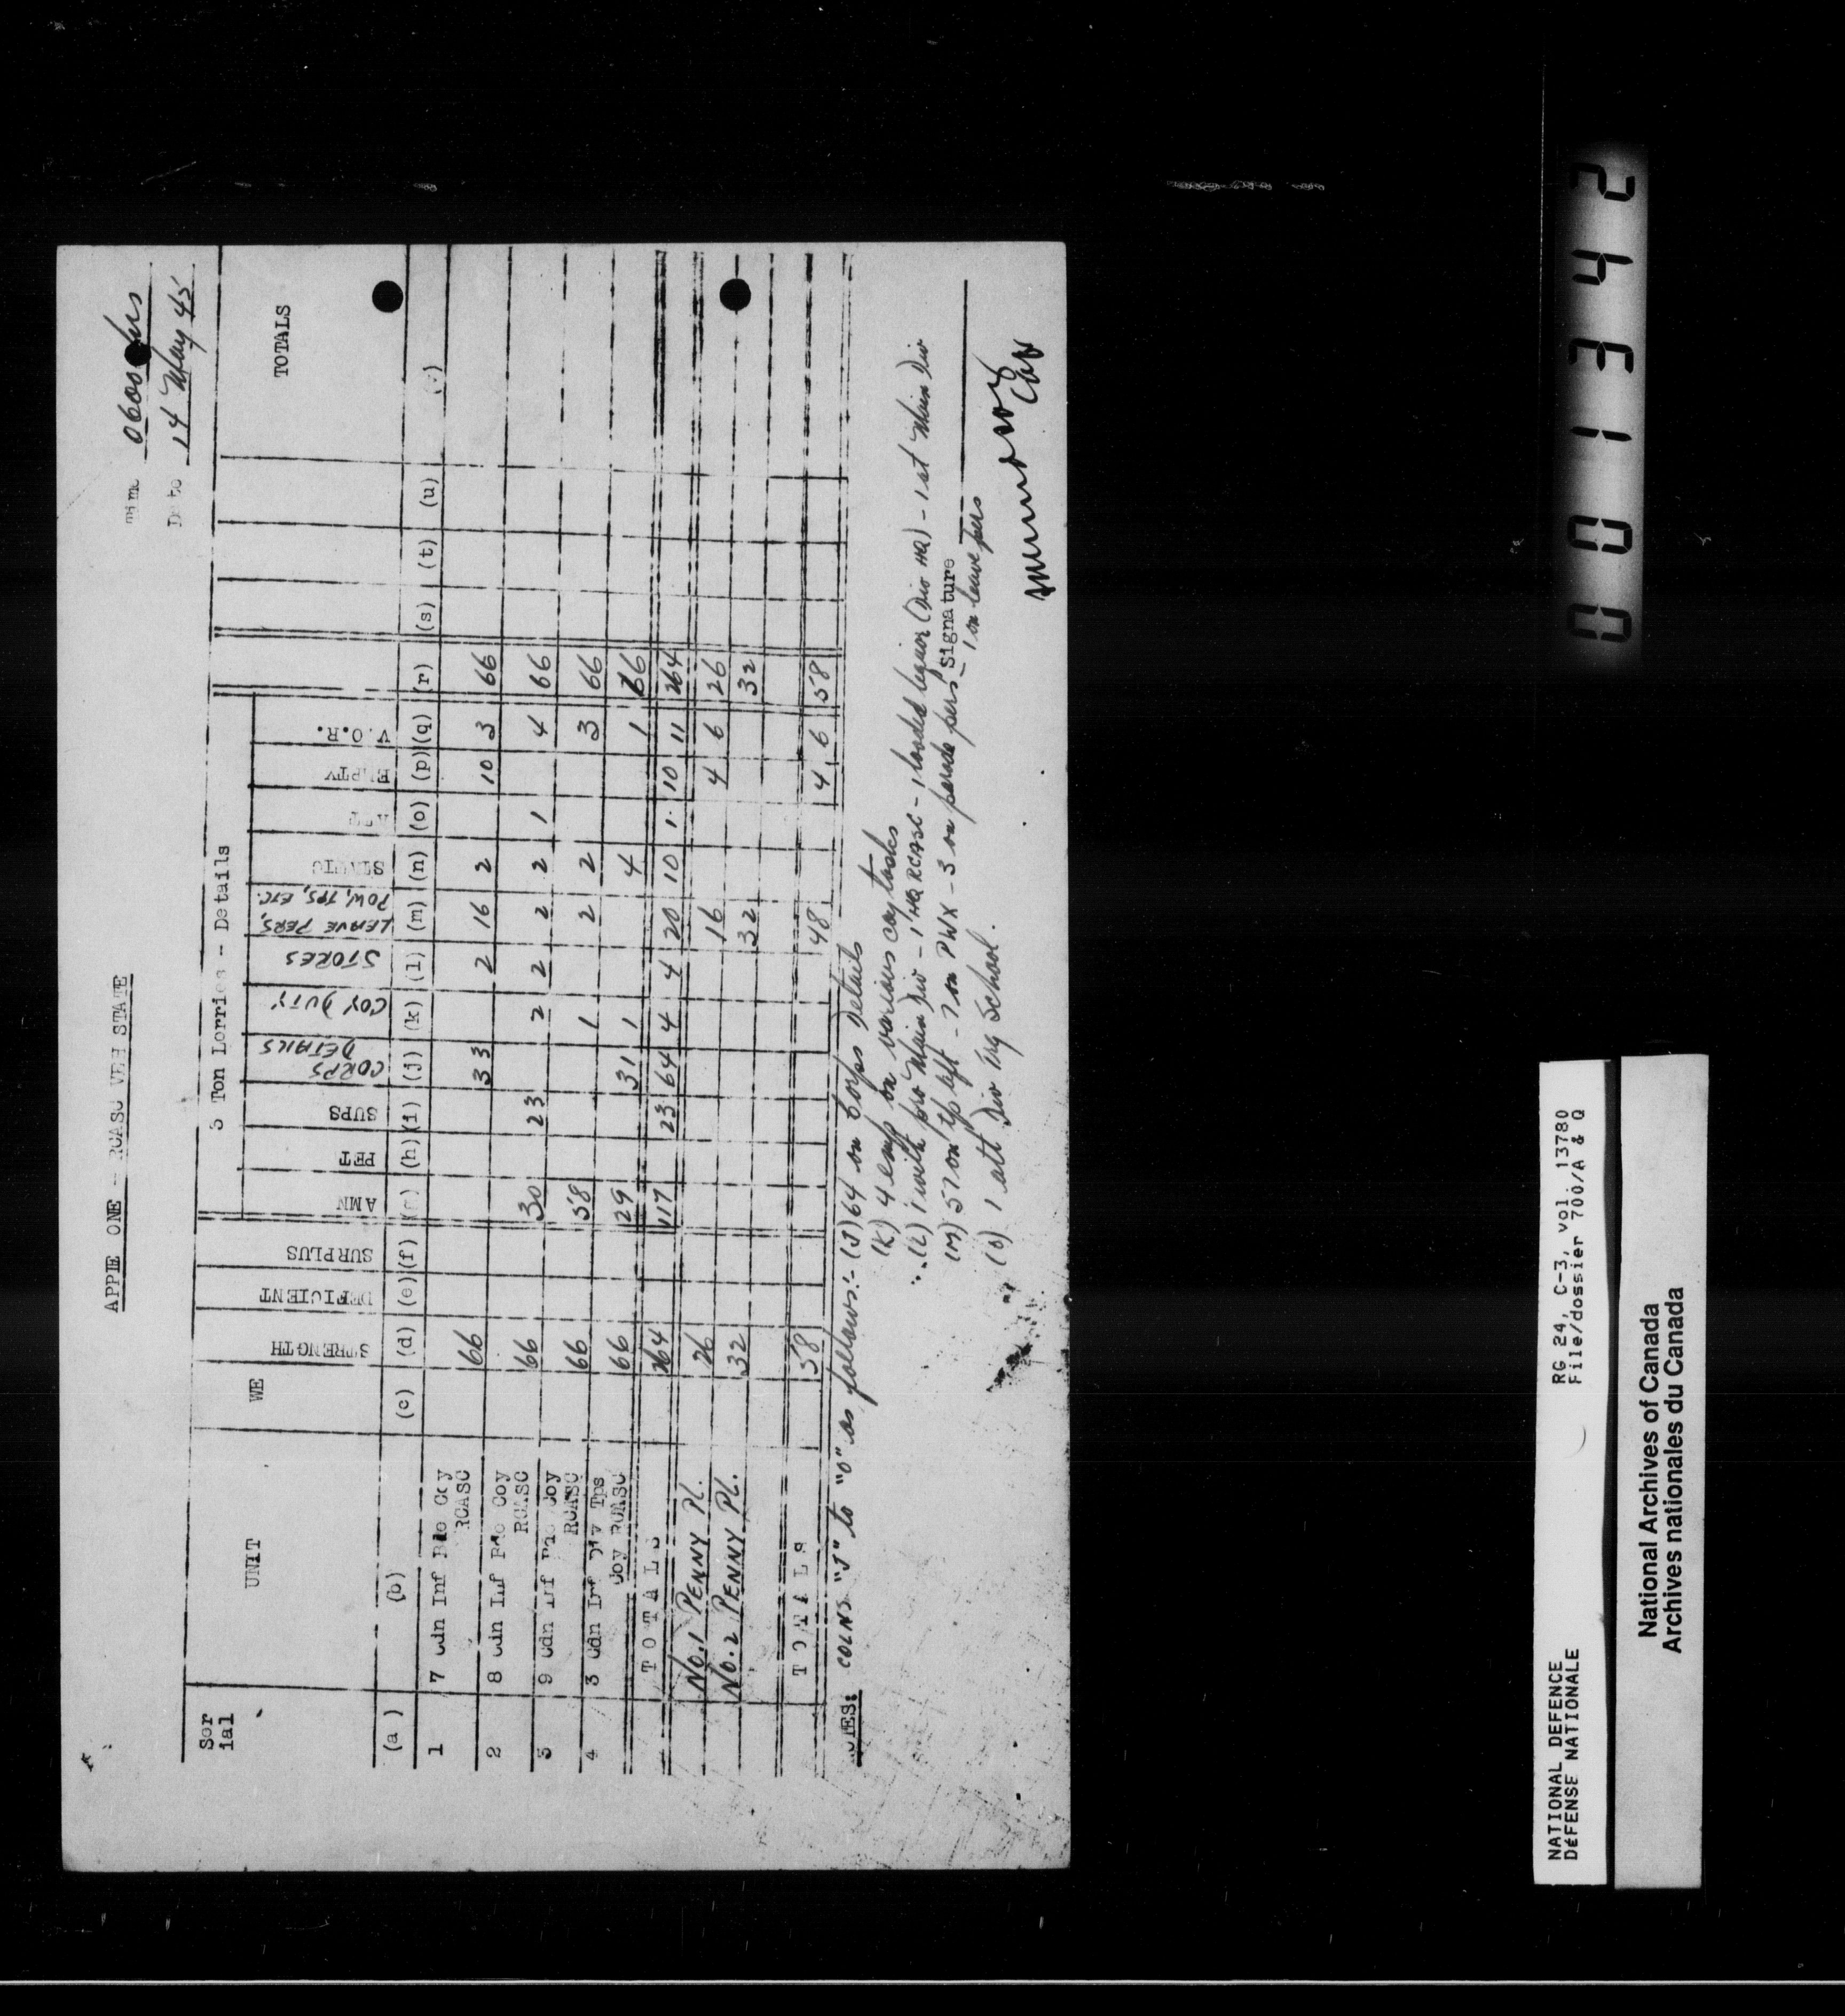 APPIE ONE - RCASC VEH STATE
Time 0600 hrs
Date 14 May 45
Ser ial UNIT WE STRENGTH DEFICIENT SURPLUS 3 Ton Lorries - Details TOTALS
AMN PET SUPS CORPS DETAILS COY DUTY STORES LEAVE PERS, POW, TPS, ETC. STATIC EMPTY V.O.R.
(a) (b) (c) (d) (e) (f) (h) (i) (j) (k) (l) (m) (n) (o) (p) (q) (r) (s) (t) (u)
1 7 Cdn Inf Bde Coy RCASC 66 33 2 16 2 10 3 66
2 8 Cdn Inf Bde Coy RCASC 66 30 23 2 2 2 2 1 4 66
3 9 Cdn Inf Bde Coy RCASC 66 58 1 2 2 3 66
4 3 Cdn Inf Div Tps Coy RCASC 66 29 31 1 4 1 66
TOTALS 264 117 23 64 4 4 20 10 1 10 11 264
No. 1 PENNY PL. 26 16 4 6 26
No. 2 PENNY PL. 32 32 32
TOTALS 58 48 4 6 58
NOTES: COLNS "J" to "O" as follows:- (J) 64 on Corps Details
(K) 4 emp on various coy tasks
(L) 1 with pro Main Div - 1 HQ RCASC - 1 loaded liquor (Div HQ) - 1 at Main Div
(M) 57 on tp lift - 7 on PWX - 3 on parade pers - 1 on leave pers
Signature
(O) 1 att Div Trg School.
Capt
001342
NATIONAL DEFENCE RG 24, C-3, vol. 13780
DéFENSE NATIONALE File/dossier 700/A & Q
National Archives of Canada
Archives nationales du Canada